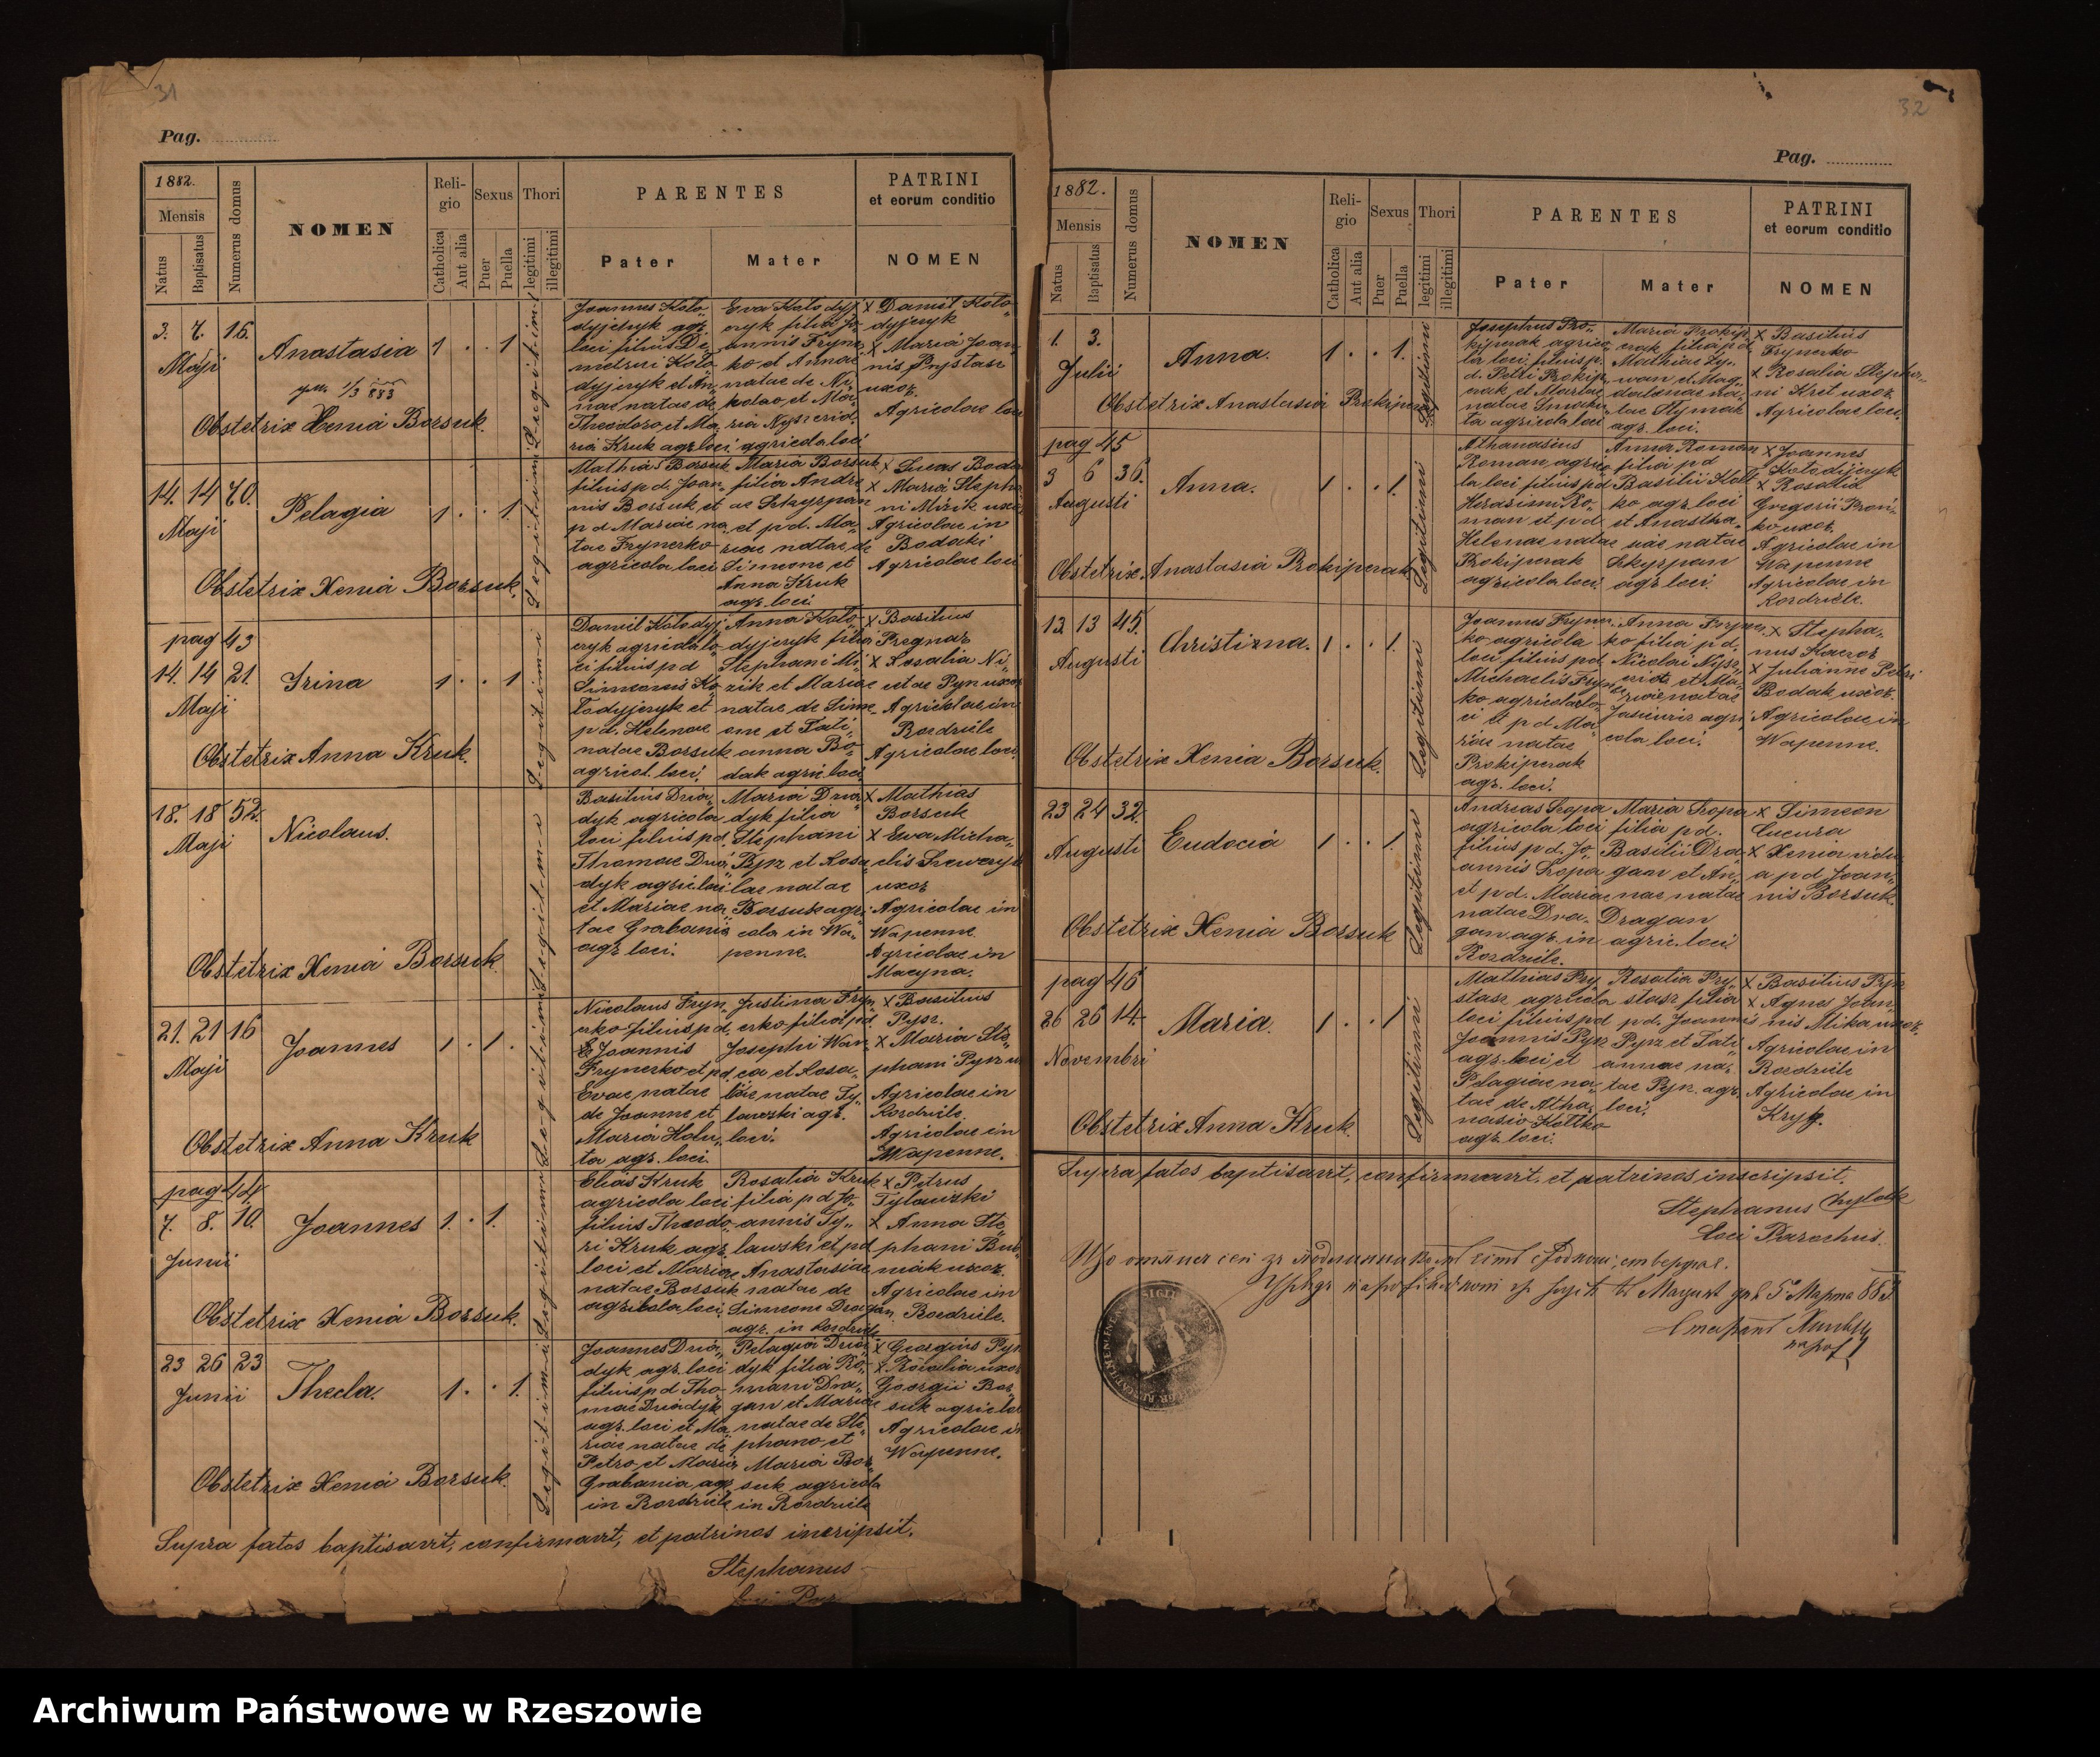 31
Pag.
1882.
Mensis
Natus
Baptisatus
Numerus domus
NOMEN
Reli-
gio
Catholica
Aut alia
Sexus
Puer
Puella
Thori
legitimi
illegitimi
PARENTES
Pater
Mater
PATRINI
et eorum conditio
NOMEN
3. 7. 15.
Maji
Anastasia 1 . . 1
Obstetrix Xenia Borsuk.
Legitimi
Joannes Koło-
dyjczyk agr.
loci filius De-
metrii Koło-
dyjczyk et An-
nae natae de
Theodoro et Ma-
ria Kruk agr. loci
Eva Kołodyj-
czyk filia Jo-
annis Fryner-
ko et Annae
natae de Ni-
kolao et Ma-
ria
agricola loci
x Daniel Koło-
dyjczyk
x Maria Joan-
nis Prystasz
uxor.
Agricolae loci
14. 14 70.
Maji
Pelagia 1 . . 1.
Obstetrix Xenia Borsuk.
Legitimi
Mathias Borsuk
filius pd. Joan-
nis Borsuk et
pd Mariae na-
tae Frynerko
agricola loci
Maria Borsuk
filia Andre-
ae Szkyrpan
et pd. Ma-
riae natae de
Simeone et
Anna Kruk
agr. loci.
x Lucas Bodak
x Maria Stepha-
ni Mizik uxor
Agricolae in
Bodaki
Agricolae loci
pag 43
14. 14 21.
Maji
Irina 1 . . 1
Obstetrix Anna Kruk.
Legitimi
Daniel Kołodyj-
czyk agricola lo-
ci filius pd
Simeonis Ko-
łodyjczyk et
pd. Helenae
natae Borsuk
agricol. loci.
Anna Koło-
dyjczyk filia
Stephani Mi-
zik et Mariae
natae de Sime-
one et Tati-
anna Bo-
dak agric. loci
x Basilius
Pregnar
x Rosalia Ni-
cetae Pyrz uxor
Agricolae in
Rozdziele
Agricolae loci.
18. 18 52.
Maji
Nicolaus.
Obstetrix Xenia Borsuk.
Legitimi
Basilius Dzia-
dyk agricola
loci filius pd.
Thomae Dzia-
dyk agricolae
et Mariae na-
tae Grabania
agr. loci.
Maria Dzia-
dyk filia
Stephani
Pyrz et Rosa-
liae natae
Borsuk agri-
cola in Wa-
penne.
x Mathias
Borsuk
x Eva Micha-
elis Szewczyk
uxor
Agricolae in
Wapenne.
Agricolae in
Macyna.
21. 21 16
Maji
Joannes 1 . 1 .
Obstetrix Anna Kruk
Legitimi
Nicolaus Fryn-
erko filius pd.
Joannis
Frynerko et pd.
Evae natae
de Joanne et
Maria Holu-
ta agr. loci.
Justina Fryn-
erko filia pd.
Josephi Wan-
ca et Rosa-
liae natae Ty-
lawski agr.
loci.
x Basilius
Pyrz.
x Maria Ste-
phani Pyrz
Agricolae in
Rozdziele.
Agricolae in
Wapenne.
pag 44
7. 8. 10.
Junii
Joannes 1. . 1.
Obstetrix Xenia Borsuk.
Legitimi
Elias Kruk
agricola loci
filius Theodo-
ri Kruk agr.
loci et Mariae
natae Borsuk
agricola loci
Rosalia Kruk
filia pd Jo-
annis Ty-
lawski et pd
Anastasiae
natae de
Simeone Dragan
agr. in Rozdziele
x Petrus
Tylawski
x Anna Ste-
phani Bub-
niak uxor.
Agricolae in
Rozdziele.
23 26 23
Junii
Thecla. 1 . . 1.
Obstetrix Xenia Borsuk.
Legitimi
Joannes Dzia-
dyk agr. loci
filius pd Tho-
mae Dziadyk
agr. loci et Ma-
riae natae de
Petro et Maria
Grabania agr
in Rozdziele
Pelagia Dzia-
dyk filia Ro-
mani Dra-
gan et Mariae
natae de Ste-
phano et
Maria Bor-
suk agricola
in Rozdziele
x Georgius Pyrz
x Rosalia uxor
Georgii Bor-
suk agricola
Agricolae in
Wapenne.
Supra fatos baptisavit, confirmavit, et patrinos inscripsit.
Stephanus
32
Pag.
1882.
Mensis
Natus
Baptisatus
Numerus domus
NOMEN
Reli-
gio
Catholica
Aut alia
Sexus
Puer
Puella
Thori
legitimi
illegitimi
PARENTES
Pater
Mater
PATRINI
et eorum conditio
NOMEN
1. 3.
Julii
Anna. 1 . . 1.
Obstetrix Anastasia Prokiperak
Legitimi
Josephus Pro-
kiperak agrico-
la loci, filius p.
d. Petri Prokip-
erak et Mariae
natae
agricola loci
Maria Prokip-
erak filia pd
Mathiae
et Mag-
dalenae na-
tae Hymak
agr. loci.
x Basilius
Frynerko
x Rosalia Stepha-
ni Kret uxor
Agricolae loci.
pag 45
3 6 36.
Augusti
Anna. 1 . . 1.
Obstetrix Anastasia Prokiperak
Legitimi
Athanasius
Roman, agrico-
la loci filius pd
Herasimi Ro-
man et pd
Helenae natae
Prokiperak
agricola loci.
Anna Roman
filia pd
Basilii Kott-
ko agr. loci
et Anastha-
siae natae
Szkyrpan
agr. loci.
x Joannes
Kołodijczyk
x Rosalia
Gregorii Pron-
ko uxor.
Agricolae in
Wapenne
Agricolae in
Rozdziele.
13. 13 45.
Augusti
Christizna. 1 . . 1.
Obstetrix Xenia Borsuk.
Legitimi
Joannes Fryner-
ko agricola
loci filius pd.
Michaelis Fryner-
ko agricola lo-
ci et pd Ma-
riae natae
Prokiperak
agr. loci.
Anna Fryner-
ko filia pd.
Nicolai
et Ma-
riae natae
agri-
cola loci.
x Stepha-
nus Kaczor
x Julianne Petri
Bodak uxor.
Agricolae in
Wapenne.
23 24 32.
Augusti
Eudocia 1 . . 1.
Obstetrix Xenia Borsuk
Legitimi
Andreas Szopa
agricola loci
filius pd. Jo-
annis Szopa
et pd. Mariae
natae Dra-
gan agr. in
Rozdziele.
Maria Szopa
filia pd.
Basilii Dra-
gan et An-
nae natae
Dragan
agric. loci
x Simeon
Cucura
x Xenia vidu-
a pd Joan-
nis Borsuk.
pag 46
26 26 14.
Novembri
Maria. 1 . . 1
Obstetrix Anna Kruk.
Legitimi
Mathias Pry-
stasz agricola
loci filius pd
Joannis Pyrz
agr. loci et
Pelagiae na-
tae de Atha-
nasio Kottko
agr. loci.
Rosalia Pry-
stasz filia
pd. Joannis
Pyrz et Tati-
annae na-
tae Pyrz. agr.
loci.
x Basilius Pyrz
x Agnes Joan-
nis Mika uxor.
Agricolae in
Rozdziele
Agricolae in
Kryg.
Supra fatos baptisavit, confirmavit, et patrinos inscripsit.
Stephanus Chylak
Loci Parochus.
Archiwum Państwowe w Rzeszowie